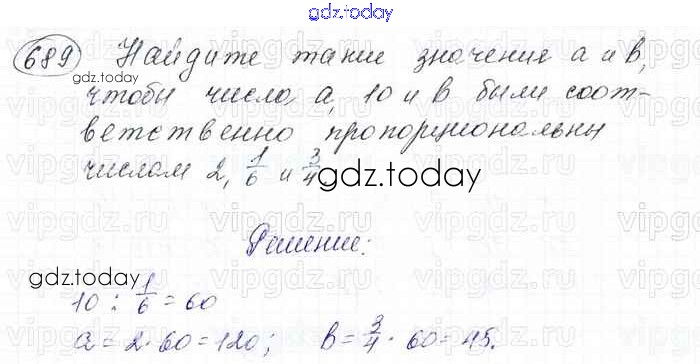 gdz.today
689 Найдите такие значения a и b,
gdz.today
чтобы числа, a, 10 и b были соот-
ветственно пропорциональны
числам 2, 1/6 и 3/4
gdz.today
Решение:
gdz.today
10 : 1/6 = 60
a = 2·60 = 120; b = 3/4 · 60 = 45.
vipgdz.ru